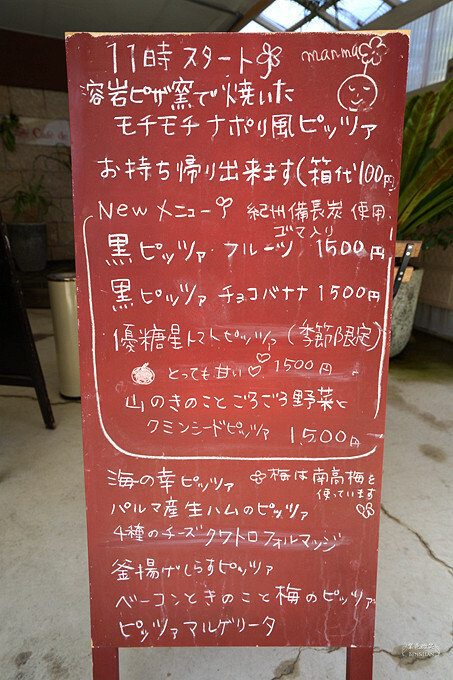 11時 スタート
manma
溶岩ピザ窯で焼いた
モチモチ ナポリ風ピッツァ
お持ち帰り出来ます(箱代100円
Newメニュー 紀州備長炭使用
ゴマ入り
黒ピッツァ フルーツ 1500円
黒ピッツァ チョコバナナ 1500円
優糖星トマトピッツァ (季節限定)
とっても甘い 1500円
山のきのことごろごろ野菜と
クミンシードピッツァ 1500円
海の幸ピッツァ
梅は南高梅を
使っています
パルマ産生ハムのピッツァ
4種のチーズクワトロフォルマッジ
釜揚げしらすピッツァ
ベーコンときのこと梅のピッツァ
ピッツァマルゲリータ